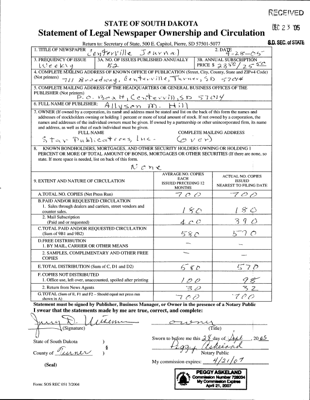 RECEIVED
DEC 23 '05
B.D. SEC. of STATE
STATE OF SOUTH DAKOTA
Statement of Legal Newspaper Ownership and Circulation
Return to: Secretary of State, 500 E. Capitol, Pierre, SD 57501-5077
1. TITLE OF NEWSPAPER Centerville Journal 2. DATE 9-28-05
3. FREQUENCY OF ISSUE Weekly 3A. NO. OF ISSUES PUBLISHED ANNUALLY 52 3B. ANNUAL SUBSCRIPTION PRICE $
4. COMPLETE MAILING ADDRESS OF KNOWN OFFICE OF PUBLICATION (Street, City, County, State and ZIP+4 Code) (Not printers) Broadway, Centerville, Turner, SD 57014
5. COMPLETE MAILING ADDRESS OF THE HEADQUARTERS OR GENERAL BUSINESS OFFICES OF THE PUBLISHER (Not printer)
P.O. Box H, Centerville SD 57014
6. FULL NAME OF PUBLISHER: Allyson M. Hill
7. OWNER (If owned by a corporation, its name and address must be stated and list on the back of this form the names and
addresses of stockholders owning or holding 1 percent or more of total amount of stock. If not owned by a corporation, the
names and addresses of the individual owners must be given. If owned by a partnership or other unincorporated firm, its name
and address, as well as that of each individual must be given.
FULL NAME COMPLETE MAILING ADDRESS
Star Publications, Inc. (over)
8. KNOWN BONDHOLDERS, MORTGAGES, AND OTHER SECURITY HOLDERS OWNING OR HOLDING 1
PERCENT OR MORE OF TOTAL AMOUNT OF BONDS, MORTGAGES OR OTHER SECURITIES (If there are none, so
state. If more space is needed, list on back of this form.
None
9. EXTENT AND NATURE OF CIRCULATION AVERAGE NO. COPIES EACH ISSUED PRECEDING 12 MONTHS ACTUAL NO. COPIES ISSUED NEAREST TO FILING DATE
A. TOTAL NO. COPIES (Net Press Run) 700 700
B. PAID AND/OR REQUESTED CIRCULATION
1. Sales through dealers and carriers, street vendors and counter sales. 180 180
2. Mail Subscription (Paid and or requested) 400 390
C. TOTAL PAID AND/OR REQUESTED CIRCULATION (Sum of 9B1 and 9B2) 580 570
D. FREE DISTRIBUTION
1. BY MAIL, CARRIER OR OTHER MEANS — —
2. SAMPLES, COMPLIMENTARY AND OTHER FREE COPIES — —
E. TOTAL DISTRIBUTION (Sum of C, D1 and D2) 580 570
F. COPIES NOT DISTRIBUTED
1. Office use, left over, unaccounted, spoiled after printing 100 98
2. Return from News Agents 32
G. TOTAL (Sum of E, F1 and F2 - Should equal net press run shown in A) 700 700
Statement must be signed by Publisher, Business Manager, or Owner in the presence of a Notary Public
I swear that the statements made by me are true, correct, and complete:
owner
(Signature) (Title)
State of South Dakota )
County of Turner )
§
Sworn to before me this 28 day of Sept, 2005
Peggy Askeland
Notary Public
(Seal) My commission expires: 4/21/09
PEGGY ASKELAND
My Commission Expires
April 21, 2009
Form: SOS REC 051 5/2004